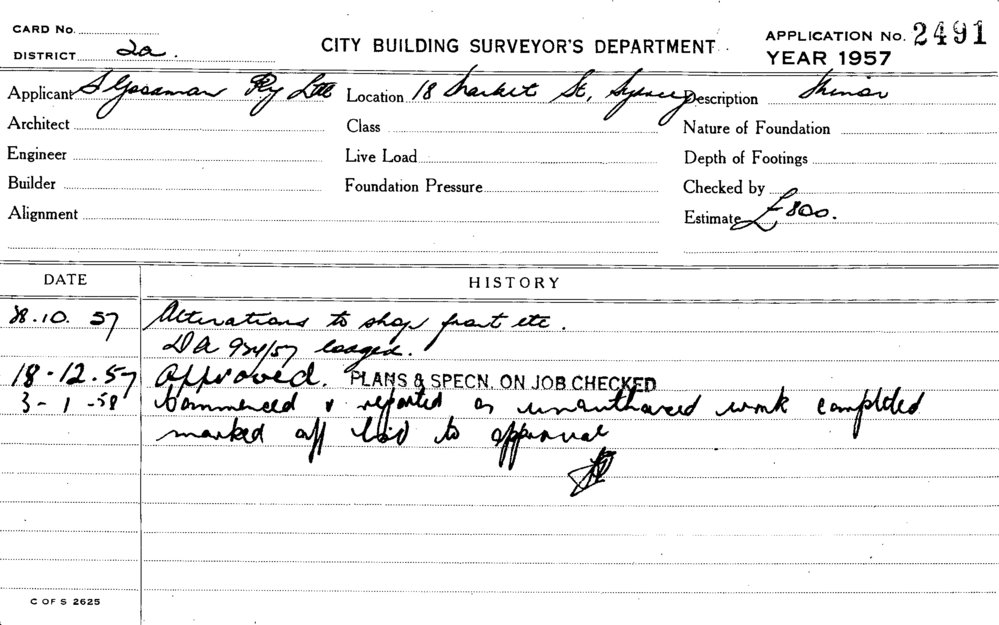 CARD No.
DISTRICT 2a.
CITY BUILDING SURVEYOR'S DEPARTMENT
APPLICATION No. 2491
YEAR 1957
Applicant S Gossman Pty Ltd Location 18 Market St, Sydney Description Minor
Architect Class Nature of Foundation
Engineer Live Load Depth of Footings
Builder Foundation Pressure Checked by
Alignment Estimate £800.
DATE HISTORY
28.10.57 Alterations to shop front etc.
DA 924/57 lodged.
18-12.57 Approved. PLANS & SPECN. ON JOB CHECKED
3-1-58 Commenced & reported as work completed
marked off to approval
C OF S 2625